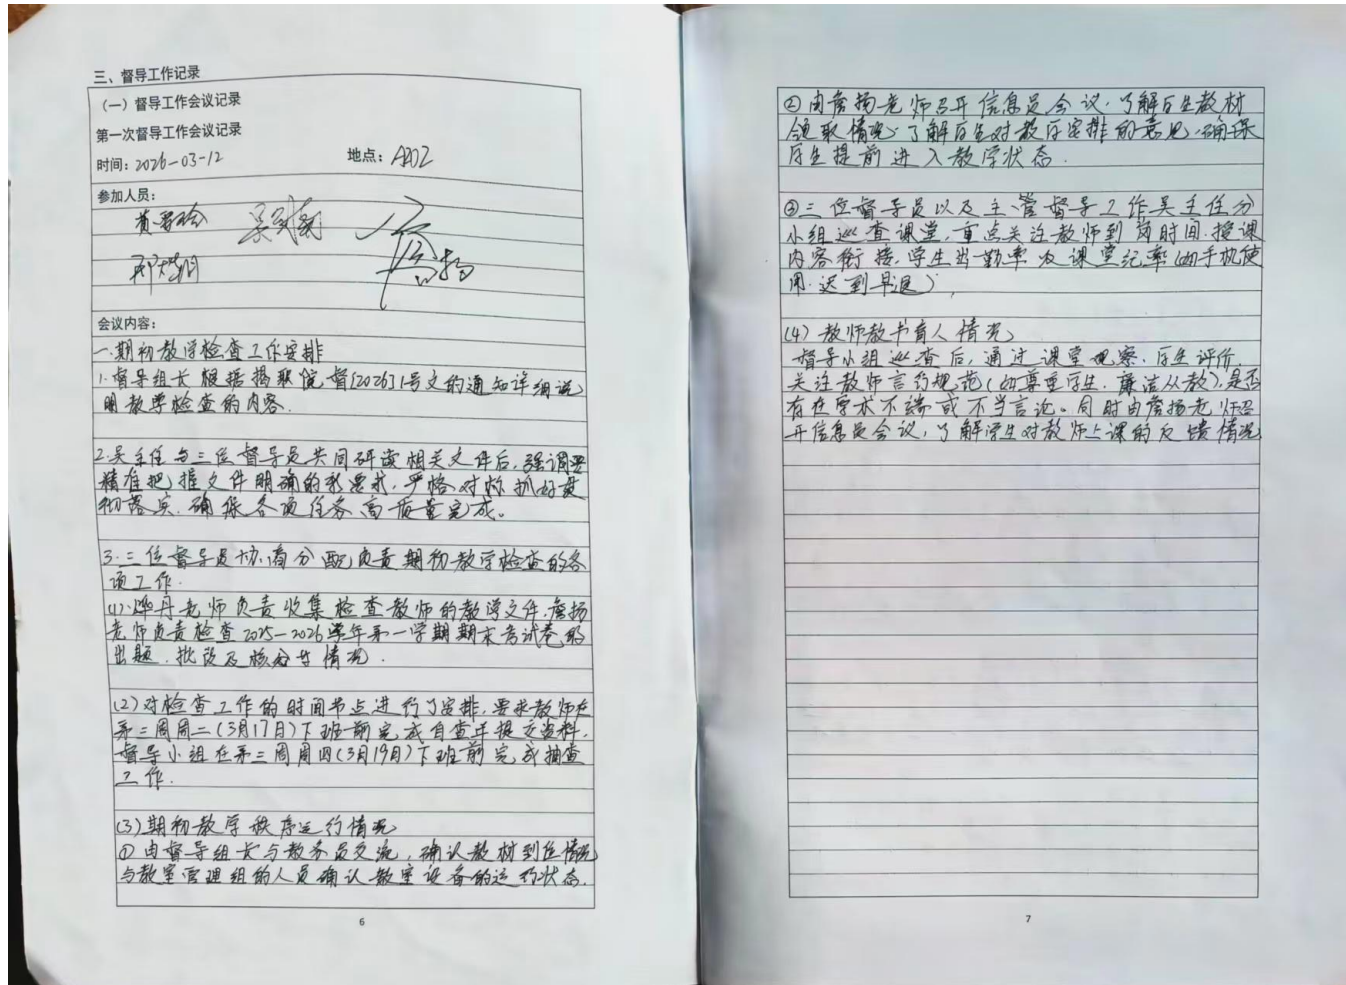 三、督导工作记录
（一）督导工作会议记录
第一次督导工作会议记录
时间：2026-03-12 地点：A202
参加人员：
会议内容：
一.期初教学检查工作安排
1.督导组长根据揭职院督[2026]1号文的通知详细说
明教学检查的内容.
2.吴主任与三位督导员共同研读相关文件后,强调要
精准把握文件明确的各要求,严格对标抓好贯
彻落实.确保各项任务高质量完成。
3.三位督导员协商分配负责期初教学检查的各
项工作.
(1).丹老师负责收集检查教师的教学文件.詹扬
老师负责检查2025-2026学年第一学期期末考试卷的
出题.批改及核分等情况.
(2)对检查工作的时间节点进行了安排.要求教师在
第三周周二(3月17日)下班前完成自查并提交资料.
督导小组在第三周周四(3月19日)下班前完成抽查
工作.
(3)期初教学秩序运行情况
①由督导组长与教务员交流,确认教材到位情况
与教室管理组的人员确认教室设备的运行状态.
6
②由詹扬老师召开信息员会议.了解学生教材
领取情况.了解学生对教学安排的意见.确保
学生提前进入教学状态.
③三位督导员以及主管督导工作吴主任分
小组巡查课堂,重点关注教师到岗时间.授课
内容衔接.学生出勤率及课堂纪律(如手机使
用.迟到早退),
(4)教师教书育人情况
督导小组巡查后,通过课堂观察.学生评价,
关注教师言行规范(如尊重学生.廉洁从教).是否
存在学术不端或不当言论。同时由詹扬老师召
开信息员会议,了解学生对教师上课的反馈情况
7